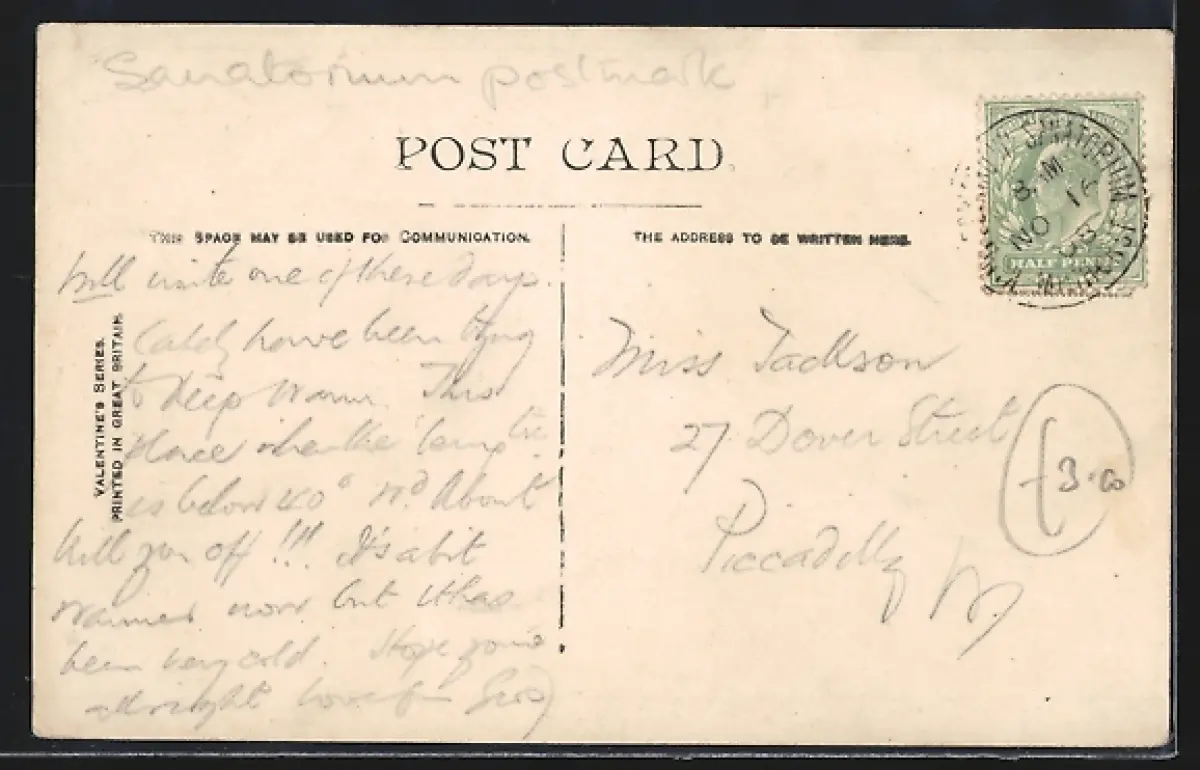 Sanatorium postmark
POST CARD.
THIS SPACE MAY BE USED FOR COMMUNICATION.
THE ADDRESS TO BE WRITTEN HERE.
Will write one of these days.
have been
to keep warm. This
place when the temp tre
is below 40° wd. about
kill you off!!! It's a bit
warmer now but it has
been very cold. Hope you're
allright love
VALENTINE'S SERIES.
PRINTED IN GREAT BRITAIN.
SANATORIUM
NO 14
HALF PENNY
Miss Jackson
27 Dover Street
Piccadilly
W.
£3.00